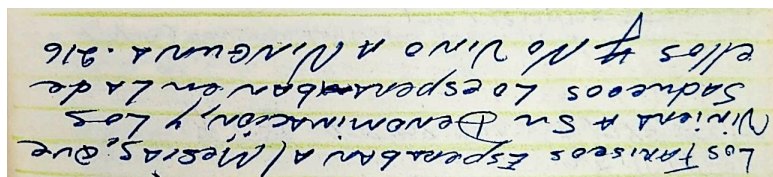 Los Fariseos Esperaban al Mesias, que
Viniera a Su Denominación, y Los
Saduceos Lo esperaban en La de
ellos y No Vino a Ninguna. 216